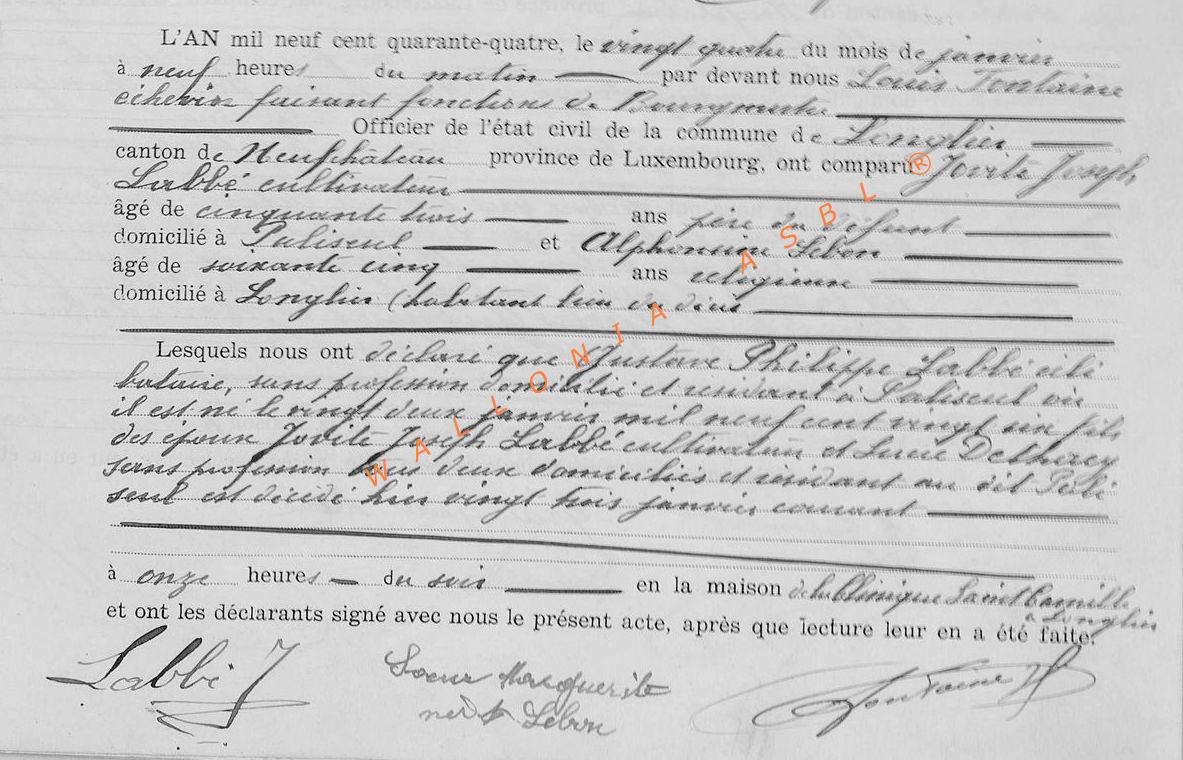 L'AN mil neuf cent quarante-quatre, le vingt quatre du mois de janvier
à neuf heures du matin par devant nous Louis Fontaine
échevin faisant fonctions de Bourgmestre
Officier de l'état civil de la commune de Longlier
canton de Neufchâteau province de Luxembourg, ont comparu Jovite Joseph
Labbé cultivateur
âgé de cinquante trois ans père du défunt
domicilié à Paliseul et Alphonsine Lebon
âgé de soixante cinq ans religieuse
domicilié à Longlier (habitant lieu
Lesquels nous ont déclaré que Gustave Philippe Labbé céli
bataire, sans profession domicilié et résidant à Paliseul où
il est né le vingt deux janvier mil neuf cent vingt six fils
des époux Jovite Joseph Labbé cultivateur et Lucie
sans profession tous deux domiciliés et résidant au dit Pali
seul est décédé hier vingt trois janvier courant
à onze heures du soir en la maison de la Clinique Saint Camille
à Longlier
et ont les déclarants signé avec nous le présent acte, après que lecture leur en a été faite.
Labbé J
Soeur Marguerite
née Lebon
Fontaine
WALLONIA ASBL ®